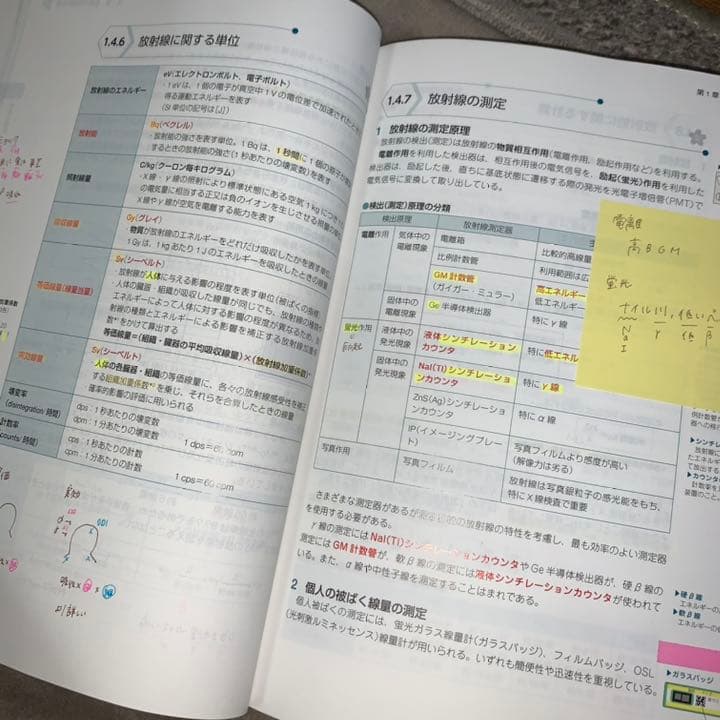 1.4.6 放射線に関する単位
放射線のエネルギー
eV(エレクトロンボルト、電子ボルト)
・1eVは、1個の電子が真空中1Vの電位差で加速されたとき
得る運動エネルギーを表す
(SI単位の記号は[J])
放射能
Bq(ベクレル)
・放射能の強さを表す単位。1Bqは、1秒間に1個の原子が
するときの放射能の強さ(1秒あたりの壊変数)を表す
照射線量
C/kg(クーロン毎キログラム)
・X線・γ線の照射により標準状態にある空気1kgにつき
の電気量に相当する正又は負のイオンを生じさせる
X線やγ線が空気を電離する能力を表す
吸収線量
Gy(グレイ)
・物質が放射線のエネルギーをどれだけ吸収したかを表す単位。
1Gyは、1kgあたり1Jのエネルギーを吸収したときの線量
等価線量(線量当量)
Sv(シーベルト)
・放射線が人体に与える影響の程度を表す単位(被ばくの指標)
・人体の臓器・組織が吸収した線量が同じでも、放射線の種類や
エネルギーによって人体に対する影響の程度が異なるため、
射線の種類とエネルギーによる影響を補正する放射線加重係
数をかけて算出する
等価線量=(組織・臓器の平均吸収線量)×(放射線加重係数)
実効線量
Sv(シーベルト)
人体の各臓器・組織の等価線量に、各々の放射線感受性を補正
する組織加重係数を乗じ、それらを合算したときの線量
確率的影響の評価に用いられる
壊変率
(disintegration 時間)
dps:1秒あたりの壊変数
dpm:1分あたりの壊変数
1 dps=60 dpm
計数率
(counts/時間)
cps:1秒あたりの計数
cpm:1分あたりの計数
1 cps=60 cpm
第1章
1.4.7 放射線の測定
1 放射線の測定原理
放射線の検出(測定)は放射線の物質相互作用(電離作用、励起作用など)を利用する。
電離作用を利用した検出器は、相互作用後の電気信号を、励起(蛍光)作用を利用した
検出器は、励起した後、直ちに基底状態に遷移する際の発光を光電子増倍管(PMT)で
電気信号に変換して取り出している。
●検出(測定)原理の分類
検出原理
放射線測定器
電離作用
気体中の
電離現象
電離箱
比較的高線量
比例計数管
利用範囲は広
GM計数管
(ガイガー・ミュラー)
高エネルギー
低エネルギー
固体中の
電離現象
Ge半導体検出器
特にγ線
蛍光作用
液体中の
発光現象
液体シンチレーション
カウンタ
特に低エネル
固体中の
発光現象
NaI(Tl)シンチレーション
カウンタ
特にγ線
ZnS(Ag)シンチレーシ
ョンカウンタ
特にα線
IP(イメージングプレー
ト)
写真フィルムより感度が高い
(解像力は劣る)
写真作用
写真フィルム
放射線は写真銀粒子の感光能をもち、
特にX線検査で重要
電離
高BGM
蛍光
ナイル川、低い
N
a
I
γ
低
β
さまざまな測定器があるが
的の放射線の特性を考慮し、最も効率のよい測定器
を使用する必要がある。
γ線の測定にはNaI(Tl)シンチレーションカウンタやGe半導体検出器が、硬β線の
測定にはGM計数管が、軟β線の測定には液体シンチレーションカウンタが使われて
いる。また、α線や中性子線を測定することはまれである。
2 個人の被ばく線量の測定
個人被ばくの測定には、蛍光ガラス線量計(ガラスバッジ)、フィルムバッジ、OSL
(光刺激ルミネッセンス)線量計が用いられる。いずれも簡便性や迅速性を重視している。
▶シンチ
▶カウン
▶硬β線
エネルギーの
▶軟β線
エネルギーの
▶ガラスバッジ